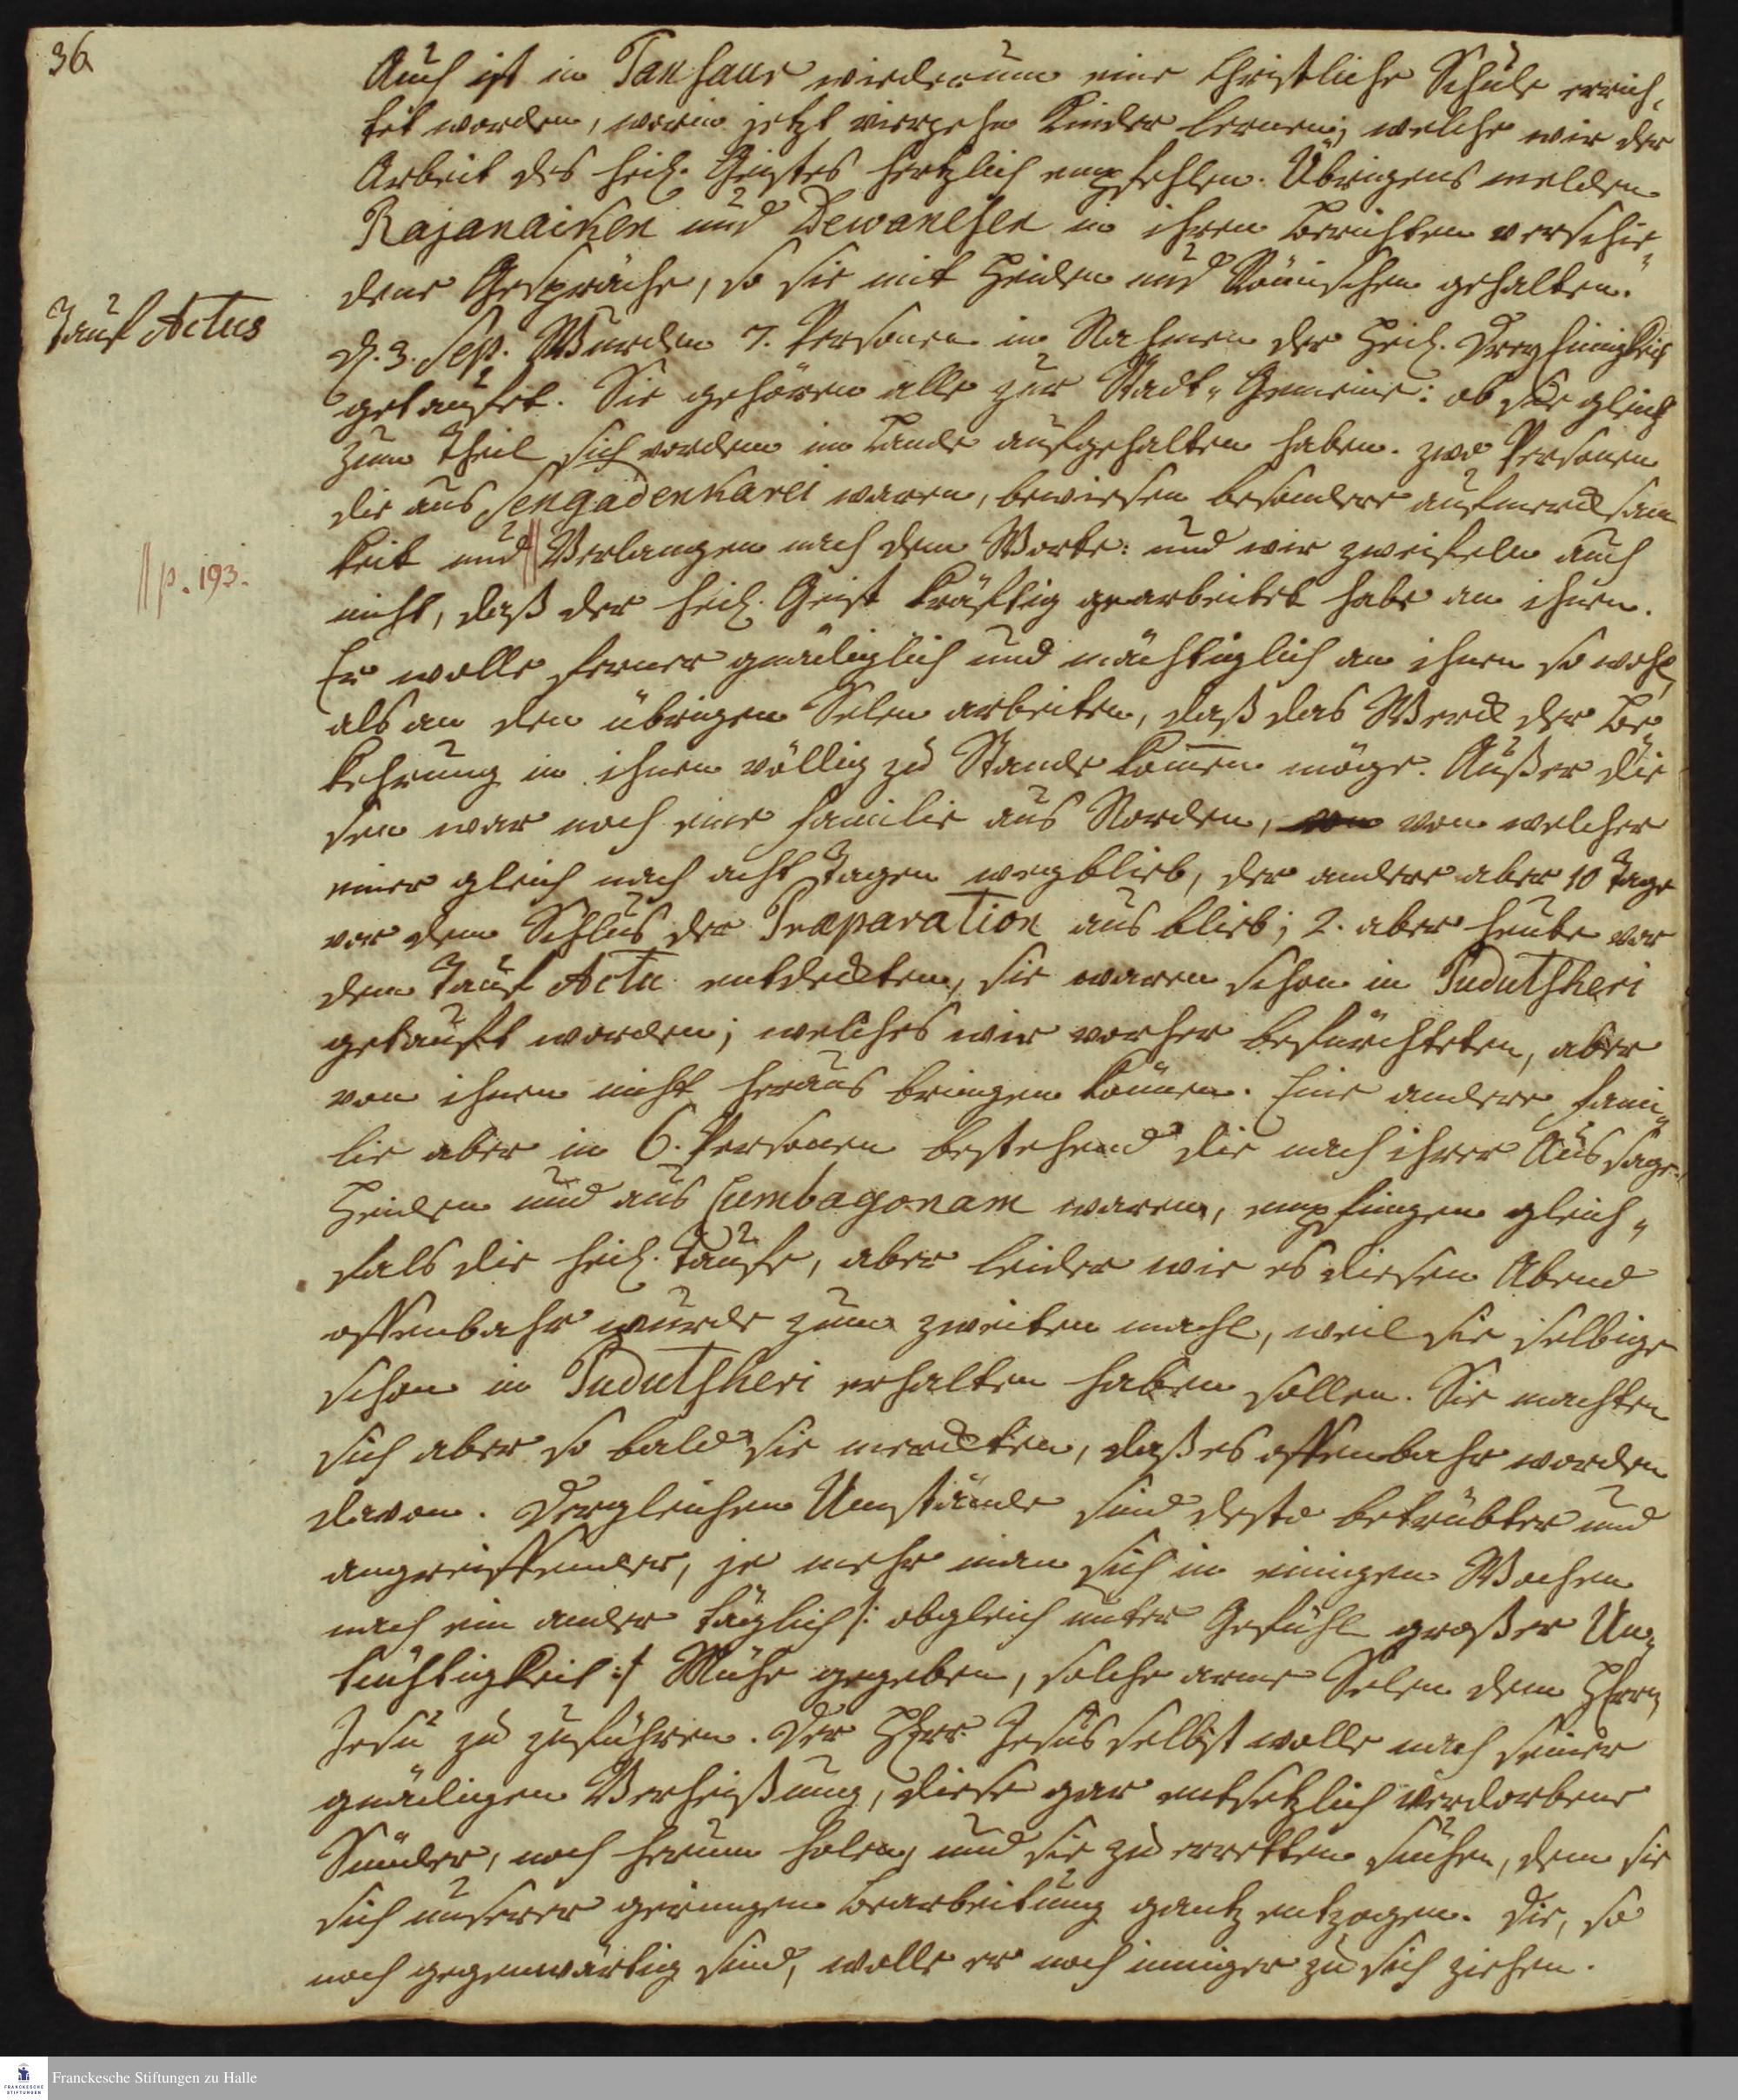 36
Auch ist in Tanshaur wiederum eine Christliche Schule errich„
tet worden, worin jetzt vierzehn Kinder lernen; welche wir der
Arbeit des heil. Geistes hertzlich empfehlen. Übrigens melden
Rajanaiken und Dewanesen in ihren Berichten verschie„
dene Gespräche, so sie mit Heiden und Römischen gehalten.
Tauf Actus
D. 3. Sep. Wurden 7. Personen im Nahmen der Heil. Dreyeinigkeit
getaufet. Sie gehören alle zur Stadt„Gemeine: ob sie gleich
zum Theil sich vordem im Lande aufgehalten haben. zwo Personen
die aus Sengadenkarei waren, bewiesen besondere aufmercksam
keit und || Verlangen nach dem Worte: und wir zweifeln auch
|| p. 193.
nicht, daß der heil. Geist kräftig gearbeitet habe an ihnen.
Er wolle ferner gnädiglich und mächtiglich an ihnen so wohl,
als an den übrigen Selen arbeiten, daß das Werck der Be„
kehrung in ihnen völlig zu Stande kommen möge. Außer die
sen war noch eine Familie aus Norden, von welcher
einer gleich nach acht Tagen wegblieb, der andere aber 10 Tage
vor dem Schlus der Præparation aus blieb; 2. aber heute vor
dem Tauf Actu entdeckten, sie waren schon in Pudutsheri
getauft worden; welches wir vorher befürchteten, aber
von ihnen nicht heraus bringen können. Eine andere Fami„
lie aber in 6. Personen bestehend die nach ihrer Aussage
Heiden und aus Cumbagonam waren, empfingen gleich„
fals die heil. Taufe, aber leider wie es diesen Abend
offenbahr wurde zum zweiten mahl, weil sie selbige
schon in Pudutsheri erhalten haben sollen. Sie machten
sich aber so bald sie merckten, daß es offenbahr worden
davon. Dergleichen Umstände sind desto betrübter und
angreiffender, je mehr man sich in einigen Wochen
nach ein ander täglich /: obgleich unter Gefühl großer Un„
tüchtigkeit :/ Mühe gegeben, solche arme Selen dem HErrn
Jesu zu zuführen. Der HErr Jesus selbst wolle nach seiner
gnädigen Verheißung, diese gar entsetzlich verdorbene
Sünder, noch herum holen, und sie zu erretten suchen, denn sie
sich unserer geringen Bearbeitung gantz entzogen. Die, so
noch gegenwärtig sind, wolle er noch inniger zu sich ziehen.
Franckesche Stiftungen zu Halle
FRANCKESCHE
STIFTUNGEN